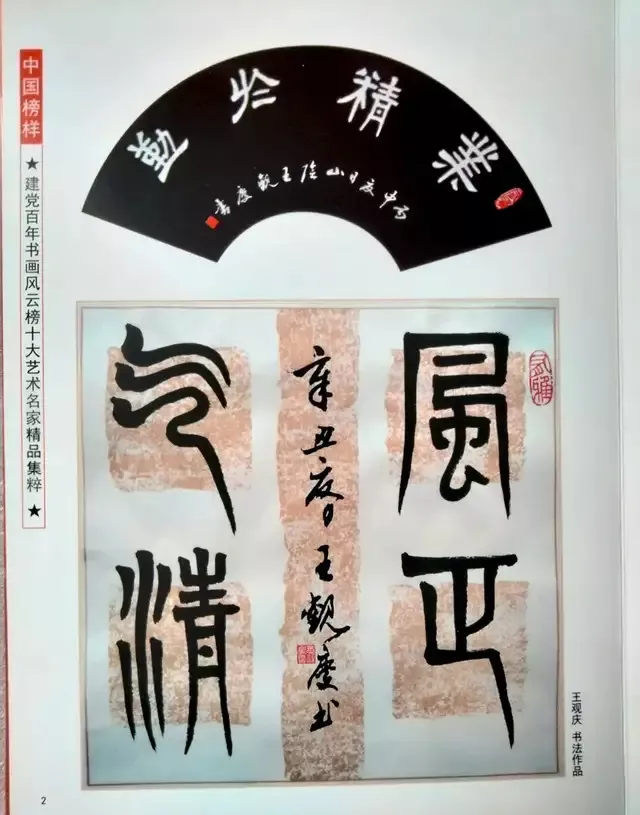 中国榜样
★ 建党百年书画风云榜十大艺术名家精品集粹 ★
業精於勤
中夏日山陰王觀慶書
風正
气清
辛丑夏日王觀慶书
王观庆 书法作品
2